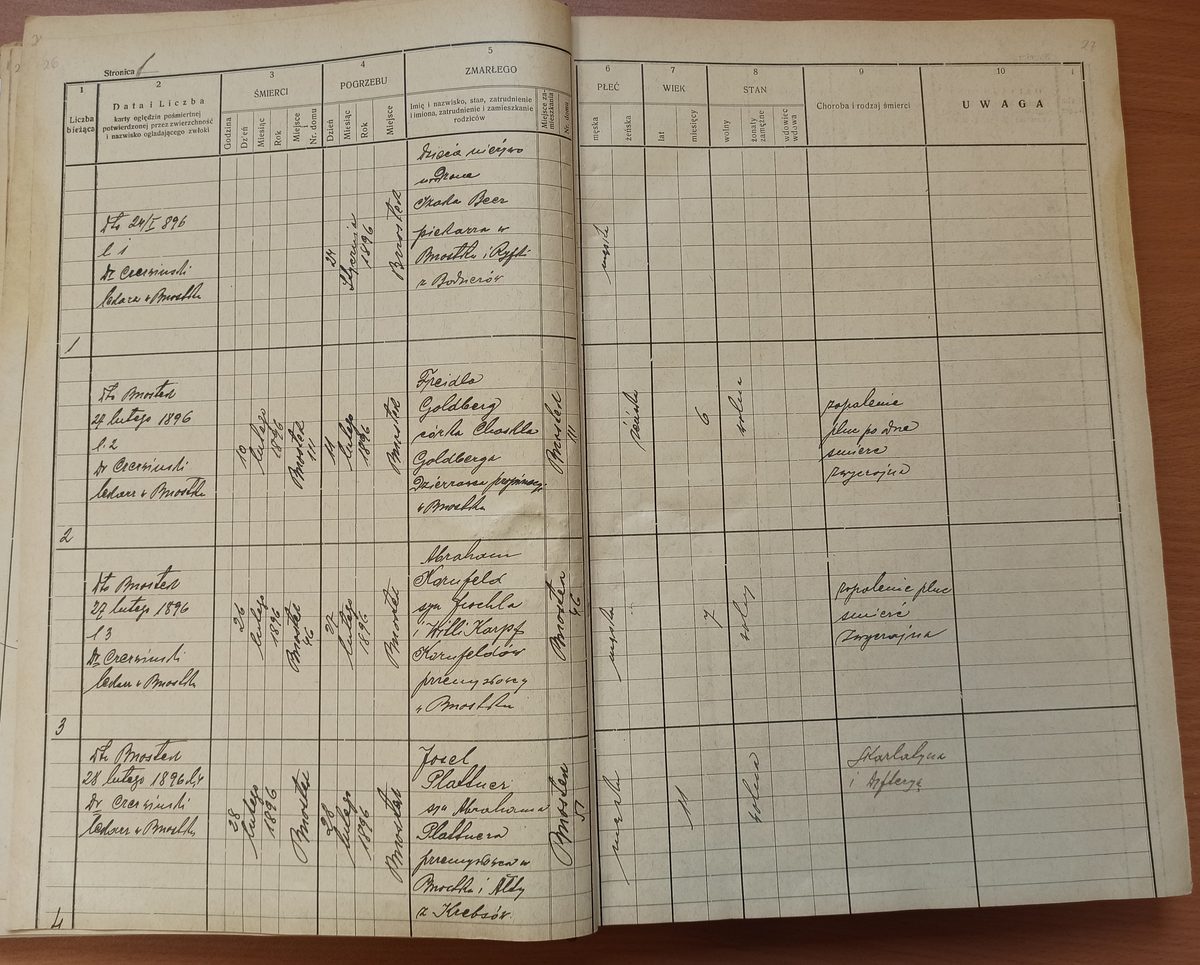 Stronica 1
26
27
1
2
3
4
5
6
7
8
9
10
Liczba
bieżąca
Data i Liczba
karty oględzin pośmiertnej
potwierdzonej przez zwierzchność
i nazwisko oglądającego zwłoki
ŚMIERCI
Godzina
Dzień
Miesiąc
Rok
Miejsce
Nr. domu
POGRZEBU
Dzień
Miesiąc
Rok
Miejsce
ZMARŁEGO
Imię i nazwisko, stan, zatrudnienie
i imiona, zatrudnienie i zamieszkanie
rodziców
Miejsce za-
mieszkania
Nr. domu
PŁEĆ
męska
żeńska
WIEK
lat
miesięcy
STAN
wolny
żonaty
zamężne
wdowiec
wdowa
Choroba i rodzaj śmierci
UWAGA
1
Dto 24/I 896
l 1
Dr Czerwinski
lekarz w Brzostku
24
Stycznia
1896
Brzostek
Dziecię nieżywo
urodzone
Izaka Beer
piekarza w
Brzostku i Ryfki
z Bodnerów
męska
2
Dto Brzostek
lutego 1896
l 2
Dr Czerwinski
lekarz w Brzostku
10
lutego
1896
Brzostek
111
11
lutego
1896
Brzostek
Freidla
Goldberg
córka Chaskla
Goldberga
Dzierżawcy propinacji
w Brzostku
Brzostek
111
żeńska
6
wolna
zapalenie
płuc po odrze
śmierć
zwyczajna
3
Dto Brzostek
27 lutego 1896
l 3
Dr Czerwinski
lekarz w Brzostku
26
lutego
1896
Brzostek
46
27
lutego
1896
Brzostek
Abraham
Kornfeld
syn Joachla
i Willi Karpf
Kornfeldów
przemysłowcy
w Brzostku
Brzostek
46
męska
7
wolny
zapalenie płuc
śmierć
zwyczajna
4
Dto Brzostek
28 lutego 1896 l.4
Dr Czerwinski
lekarz w Brzostku
28
lutego
1896
Brzostek
28
lutego
1896
Brzostek
Josel
Plattner
syn Abrahama
Plattnera
przemysłowca w
Brzostku i Ałty
z Krebsów
Brzostek
51
męska
11
wolna
Szkarlatyna
i Dyfterya